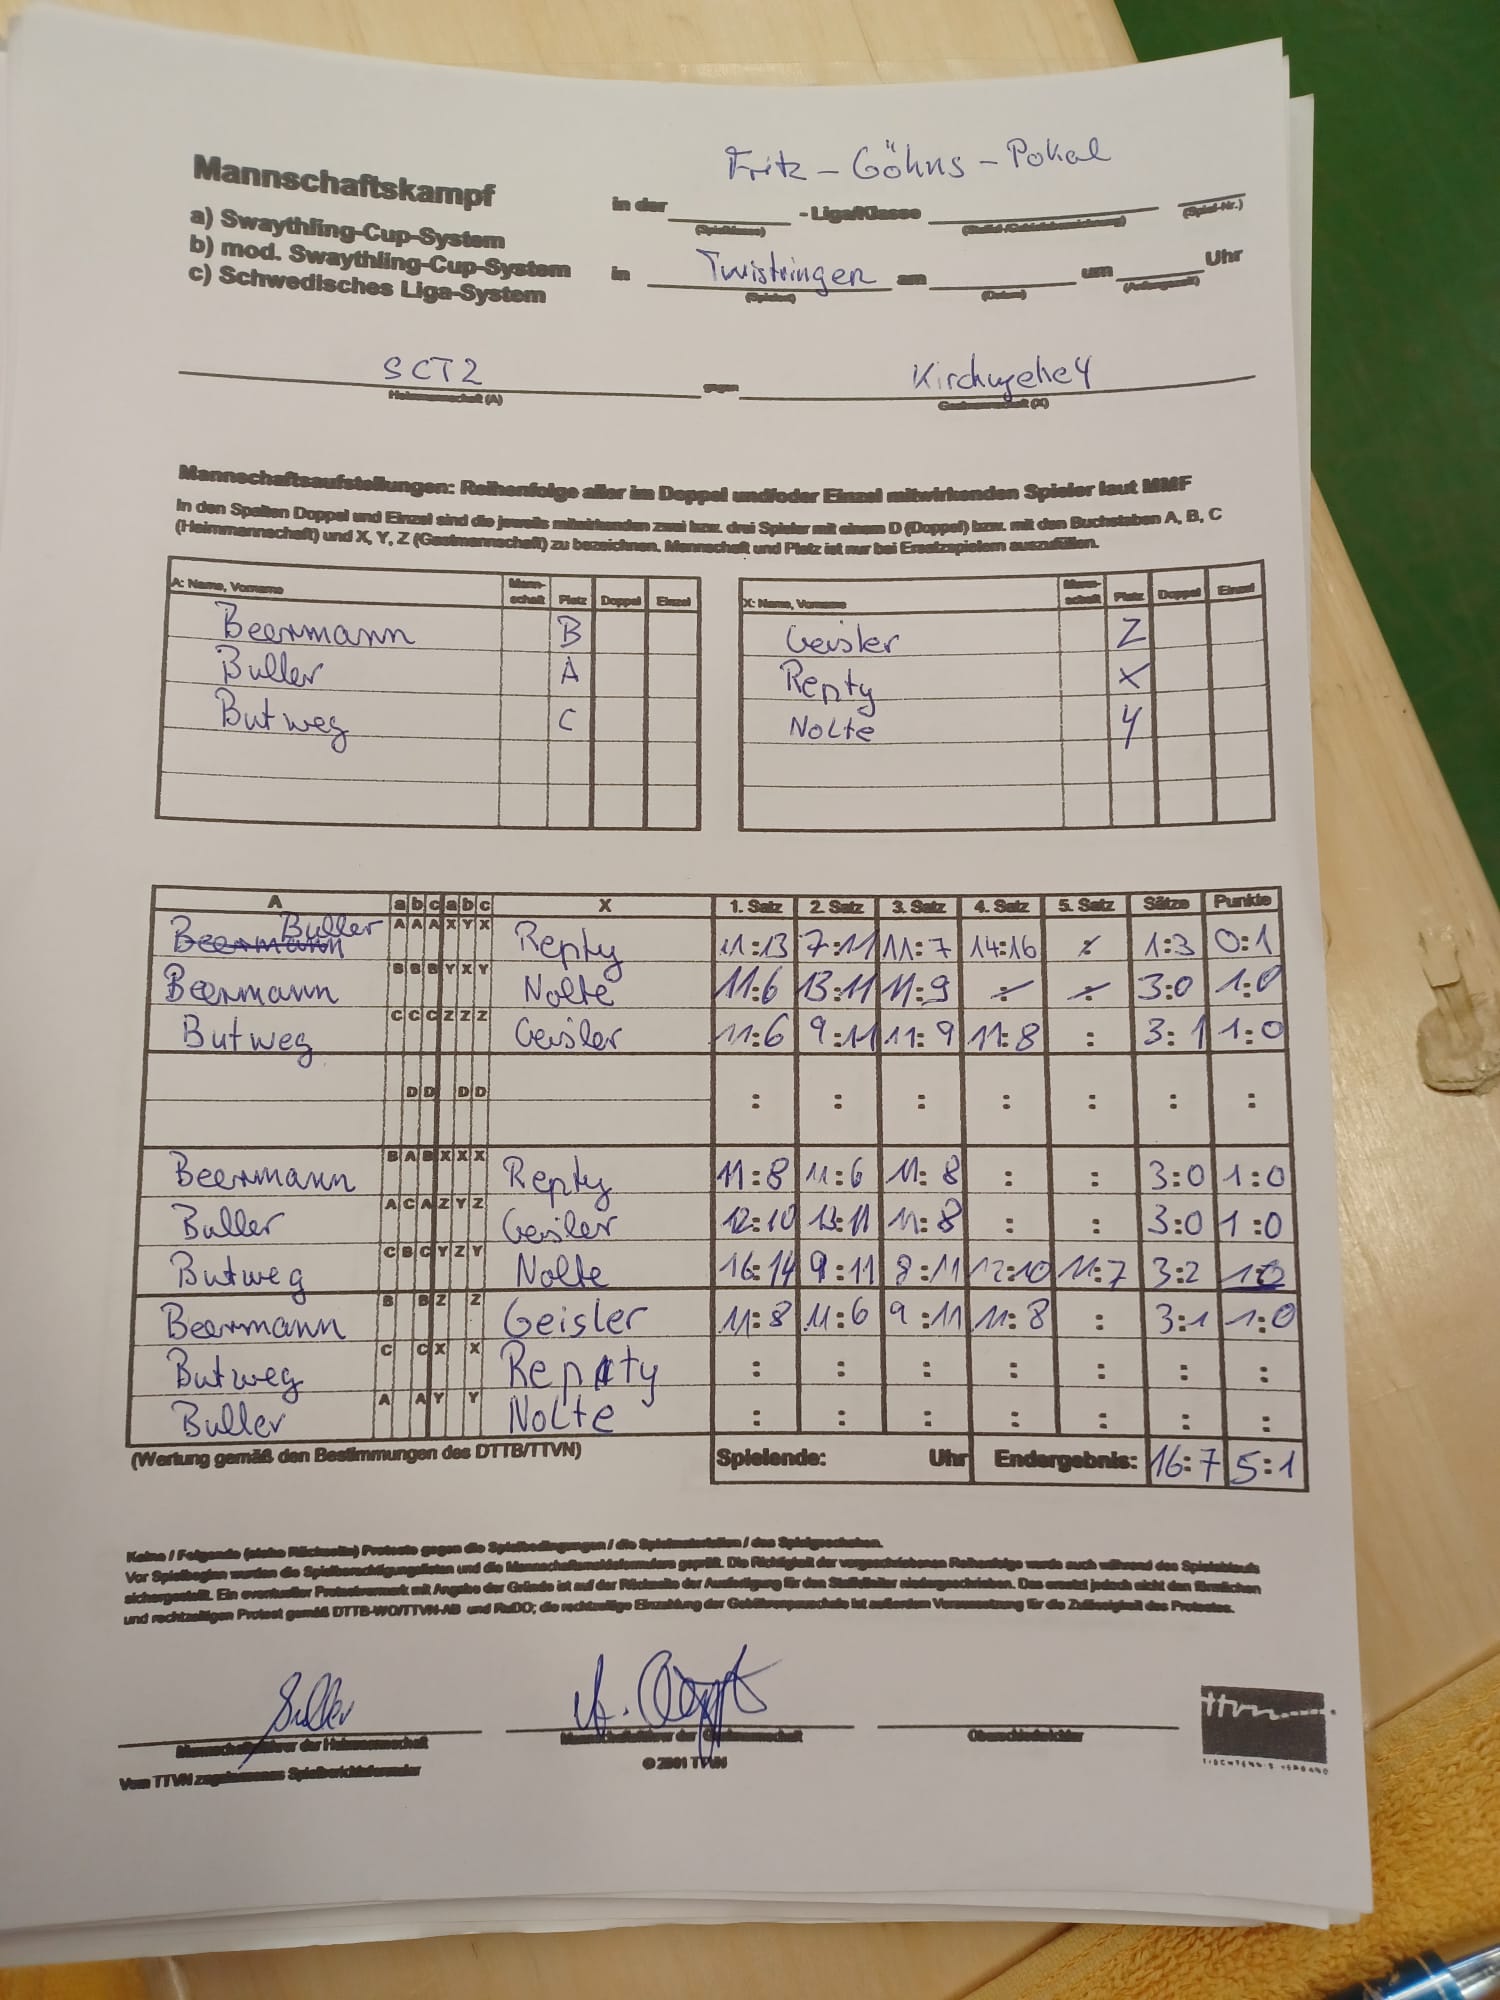 Fritz - Göhns - Pokal
Mannschaftskampf
in der - Liga/Klasse
(Spielklasse) (Staffel-/Gebietsbezeichnung) (Spiel-Nr.)
a) Swaythling-Cup-System
b) mod. Swaythling-Cup-System
c) Schwedisches Liga-System
in Twistringen am um Uhr
(Spielort) (Datum) (Anfangszeit)
SCT2 gegen Kirchweyhe 4
Heimmannschaft (A) Gastmannschaft (X)
Mannschaftsaufstellungen: Reihenfolge aller im Doppel und/oder Einzel mitwirkenden Spieler laut MMF
In den Spalten Doppel und Einzel sind die jeweils mitwirkenden zwei bzw. drei Spieler mit einem D (Doppel) bzw. mit den Buchstaben A, B, C
(Heimmannschaft) und X, Y, Z (Gastmannschaft) zu bezeichnen. Mannschaft und Platz ist nur bei Ersatzspielern auszufüllen.
A: Name, Vorname Mann-schaft Platz Doppel Einzel
Beermann B
Buller A
Butweg C
X: Name, Vorname Mann-schaft Platz Doppel Einzel
Geisler Z
Repty X
Nolte Y
A a b c a b c X 1. Satz 2. Satz 3. Satz 4. Satz 5. Satz Sätze Punkte
Beermann Buller A A A X Y X Repty 11:13 7:11 11:7 14:16 : 1:3 0:1
Beermann B B B Y X Y Nolte 11:6 13:11 11:9 : : 3:0 1:0
Butweg C C C Z Z Z Geisler 11:6 9:11 11:9 11:8 : 3:1 1:0
D D D D : : : : : : :
Beermann B A B X X X Repty 11:8 11:6 11:8 : : 3:0 1:0
Buller A C A Z Y Z Geisler 12:10 13:11 11:8 : : 3:0 1:0
Butweg C B C Y Z Y Nolte 16:14 9:11 8:11 12:10 11:7 3:2 10
Beermann B B Z Z Geisler 11:8 11:6 9:11 11:8 : 3:1 1:0
Butweg C C X X Repty : : : : : : :
Buller A A Y Y Nolte : : : : : : :
(Wertung gemäß den Bestimmungen des DTTB/TTVN) Spielende: Uhr Endergebnis: 16:7 5:1
Keine / Folgende (siehe Rückseite) Proteste gegen die Spielbedingungen / die Spielmaterialien / das Spielgeschehen.
Vor Spielbeginn wurden die Spielberechtigungslisten und die Mannschaftsmeldeformulare geprüft. Die Richtigkeit der vorgeschriebenen Reihenfolge wurde auch während des Spielablaufs
sichergestellt. Ein eventueller Protestvermerk mit Angabe der Gründe ist auf der Rückseite der Ausfertigung für den Staffelleiter niedergeschrieben. Das ersetzt jedoch nicht den förmlichen
und rechtzeitigen Protest gemäß DTTB-WO/TTVN-AB und RuDO; die rechtzeitige Einzahlung der Gebührenpauschale ist außerdem Voraussetzung für die Zulässigkeit des Protestes.
Buller
Mannschaftsführer der Heimmannschaft Mannschaftsführer der Gastmannschaft Oberschiedsrichter
Vom TTVN zugelassenes Spielberichtsformular © 2001 TTVN
ttvn
TISCHTENNIS VERBAND